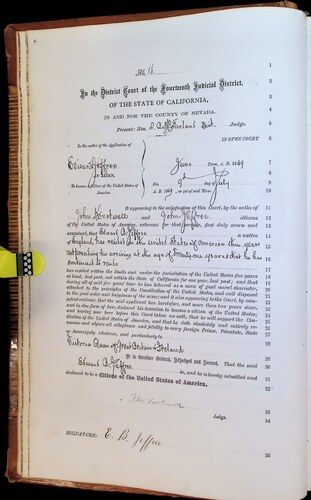 No 16
In the District Court of the Fourteenth Judicial District.
OF THE STATE OF CALIFORNIA,
IN AND FOR THE COUNTY OF NEVADA.
Present: Hon. T. B. McFarland Dist. Judge.
IN OPEN COURT
In the matter of the Application of
Edward Jeffree
To become a Citizen of the United States of America.
June Term, A. D. 1869
This 9th day of July
A. D. 1869
It appearing to the satisfaction of this Court, by the oaths of
John and John Jeffree citizens
of the United States of America, witnesses for that purpose, first duly sworn and
examined, that Edward B. Jeffree a native
of England, has resided in the United States of America three years
next preceding his arriving at the age of twenty-one years that he has
continued to reside
has resided within the limits and under the jurisdiction of the United States five years
at least, last past, and within the State of California for one year, last past; and that
during all of said five years' time he has behaved as a man of good moral character,
attached to the principles of the Constitution of the United States, and well disposed
to the good order and happiness of the same; and it also appearing to the Court, by competent
evidence, that the said applicant has heretofore, and more than two years since,
and in due form of law, declared his intention to become a citizen of the United States;
and having now here before this Court taken an oath, that he will support the Constitution
of the United States of America, and that he doth absolutely and entirely renounce
and abjure all allegiance and fidelity to every foreign Prince, Potentate, State
or Sovereignty whatever, and particularly to
Victoria Queen of Great Britain & Ireland
It is therefore Ordered, Adjudged and Decreed, That the said
Edward B. Jeffree be, and he is hereby admitted and
declared to be a Citizen of the United States of America.
T B McFarland
Judge.
SIGNATURE: E. B. Jeffree
1
2
3
4
5
6
7
8
9
10
11
12
13
14
15
16
17
18
19
20
21
22
23
24
25
26
27
28
29
30
31
32
33
34
35